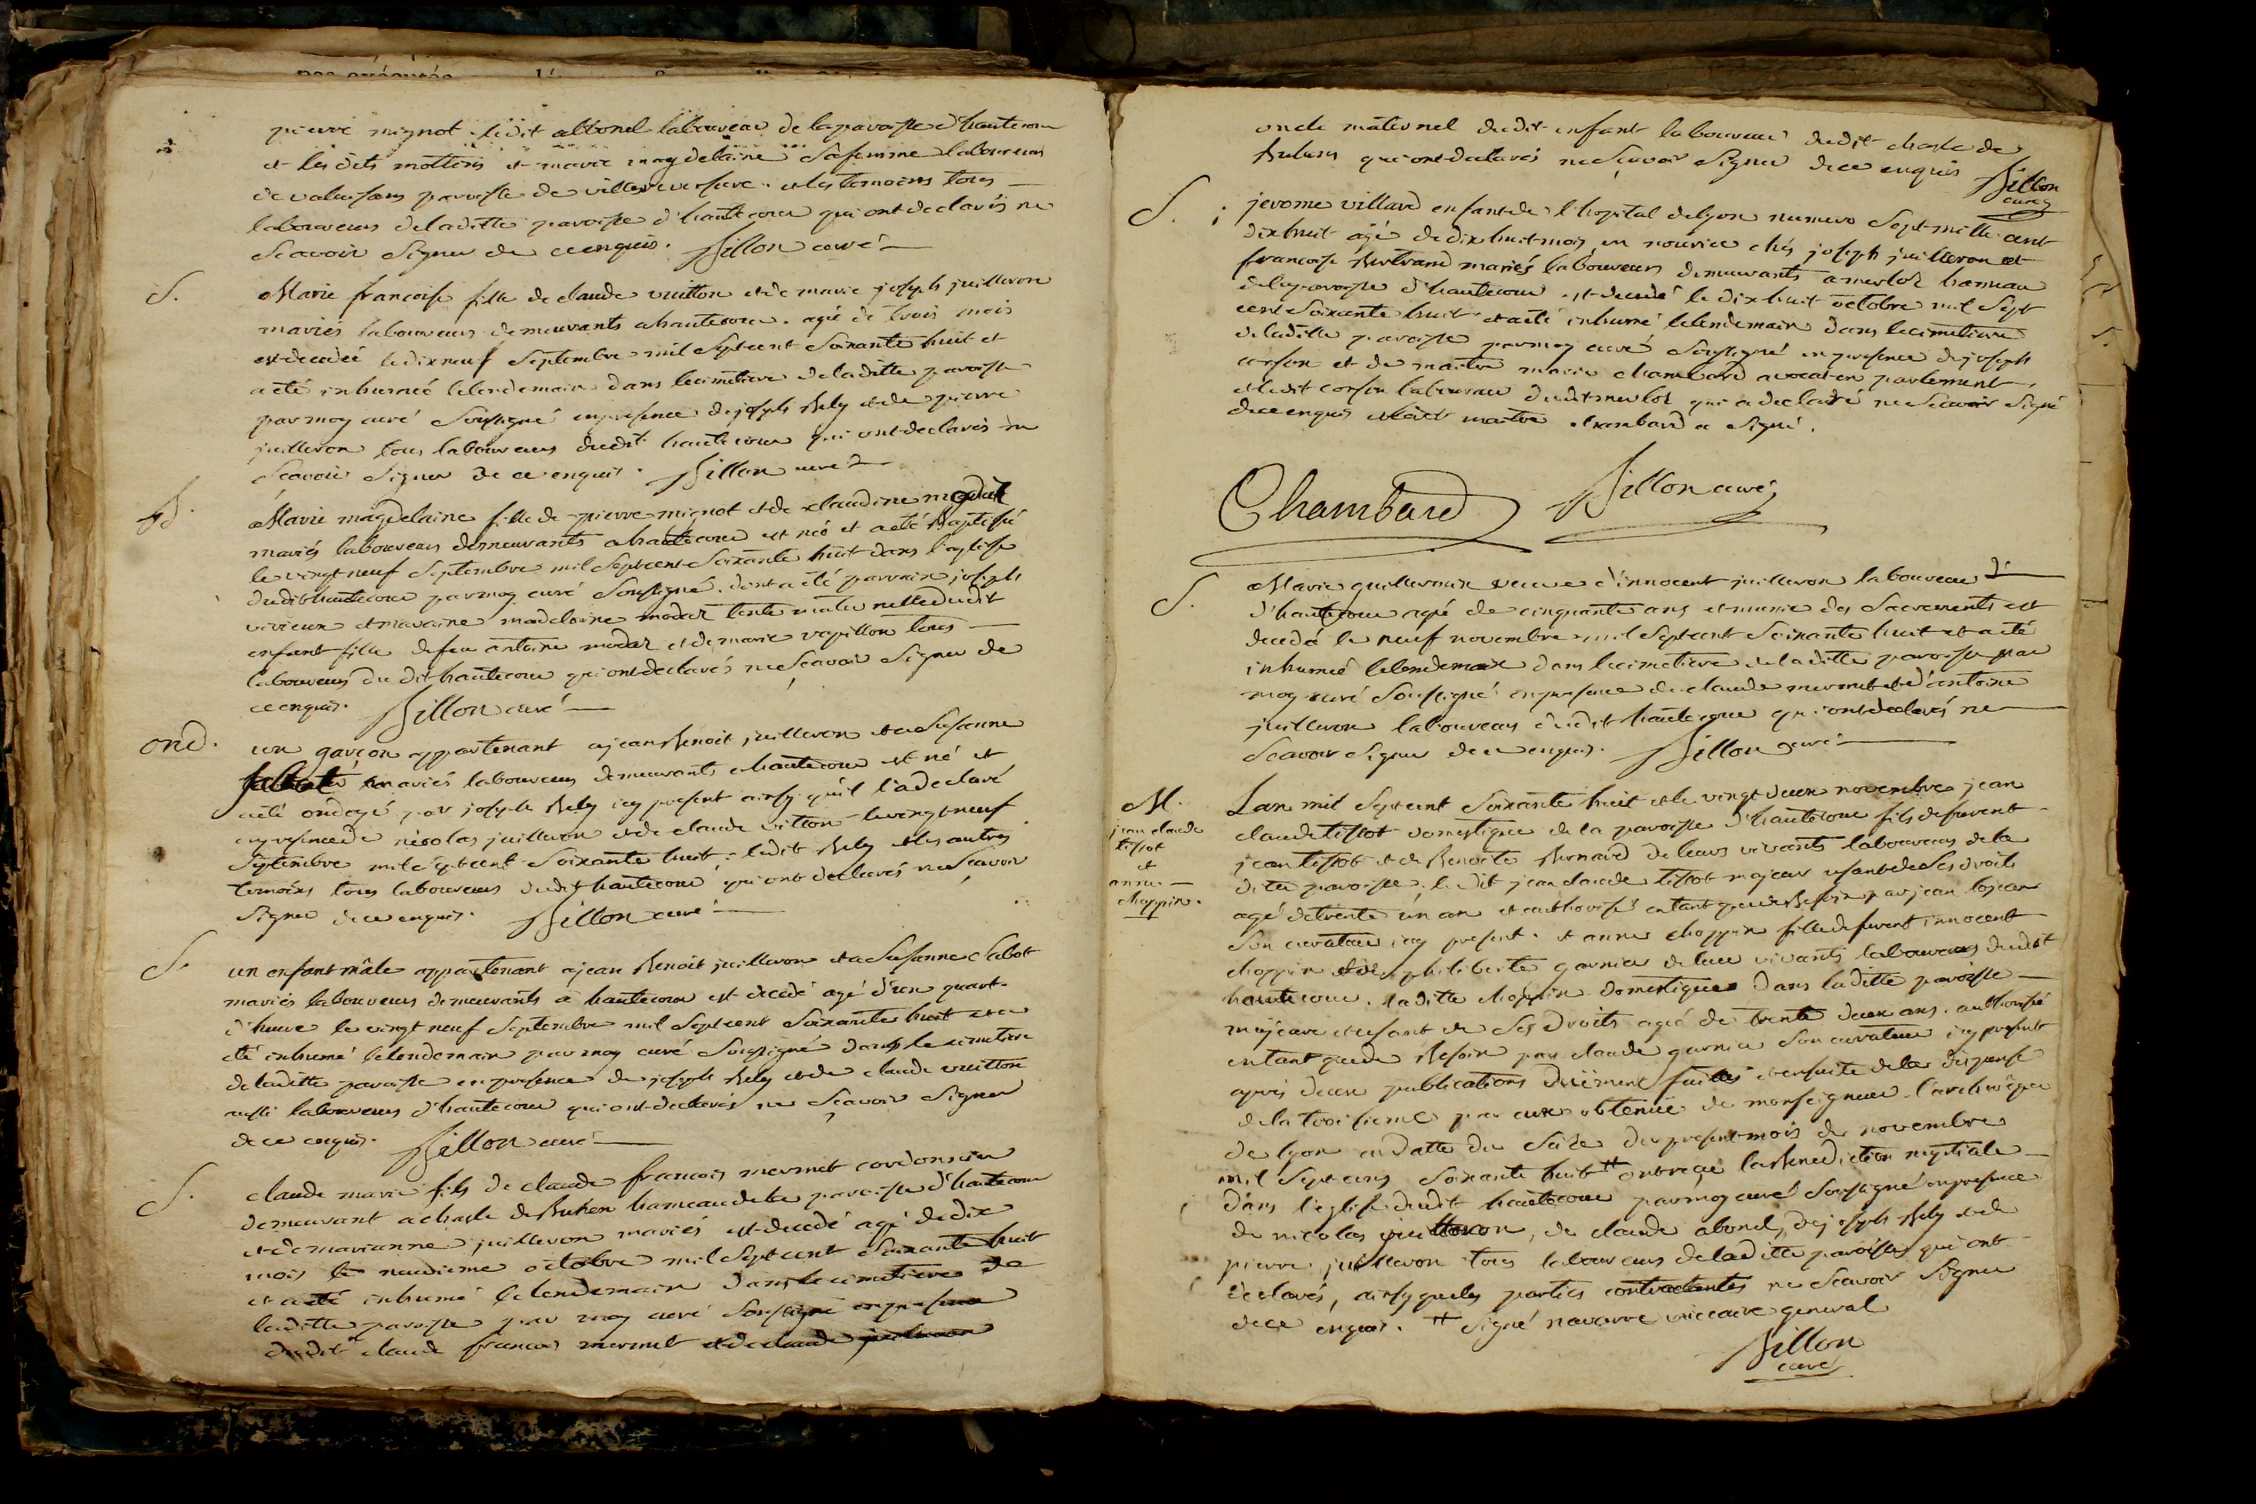 pierre mignot ledit abbonel laboureur de la paroisse d'hautecour
et les dits mottins et marie magdelaine sa femme laboureurs
de paroisse de villereversure. et les temoins tous
laboureurs de laditte paroisse d'hautecour qui ont declarés ne
scavoir signer de ce enquis. Billon curé
S.
Marie francoise fille de claude vuitton et de marie joseph juilleron
mariés laboureurs demeurants a hautecour. agé de trois mois
est decedée le dix neuf septembre mil sept cent soixante huit et
a eté inhumée le lendemain dans le cimetiere de laditte paroisse
par moy curé soussigné en presence de joseph Rely et de pierre
juilleron tous laboureurs dudit hautecour qui ont declarés ne
scavoir signer de ce enquis. Billon curé
B.
Marie magdelaine fille de pierre mignot et de claudine
mariés laboureurs demeurants a hautecour est née et a eté Baptisé
le vingt neuf septembre mil sept cent soixante huit dans l'eglise
dudit hautecour par moy curé soussigné. dont a été parrain joseph
vivieux et maraine madelaine modaz tente maternelle dudit
enfant fille de feu antoine modaz et de marie vapillon tous
laboureurs du dit hautecour qui ont declarés ne scavoir signer de
ce enquis. Billon curé
ond.
un garçon appartenant a jean Benoit juilleron et a Susanne
mariés laboureurs demeurants a hautecour est né et
a eté ondoyé par joseph Rely icy present ainsy qu'il l'a declaré
en presence de nicolas juilleron et de claude vitton le vingt neuf
septembre mil sept cent soixante huit. ledit Rely et les autres
temoins tous laboureurs dudit hautecour qui ont declarés ne scavoir
signer de ce enquis. Billon curé
S.
un enfant mâle appartenant a jean Benoit juilleron et a Susanne Sabot
mariés laboureurs demeurants a hautecour est decedé agé d'un quart
d'heure le vingt neuf septembre mil sept cent soixante huit et a
eté inhumé le lendemain par moy curé soussigné dans le cimetiere
de laditte paroisse en presence de joseph Rely et de claude vuitton
aussi laboureurs d'hautecour qui ont declarés ne scavoir signer
de ce enquis. Billon curé
S.
claude marie fils de claude francois mermet cordonnier
demeurant a chasle de Buhen hameau de la paroisse d'hautecour
et de marianne juilleron mariés est decedé agé de dix
mois le neuvieme octobre mil sept cent soixante huit
et a eté inhumé le lendemain dans le cimetiere de
laditte paroisse par moy curé soussigné en presence
dudit claude francois mermet et de claude juilleron
oncle maternel dudit enfant laboureur dudit chasle de
Buhen qui ont declarés ne scavoir signer de ce enquis Billon
curé
S.
jerome villard enfant de l'hopital de lyon numero sept mille cent
dix huit agé de dix huit mois en nourice chés joseph juilleron et
francoise Bertrand mariés laboureurs demeurants a merloz hameau
de la paroisse d'hautecour. est decedé le dix huit octobre mil sept
cent soixante huit et a eté inhumé le lendemain dans le cimetiere
de laditte paroisse par moy curé soussigné en presence de joseph
corson et de maitre marie chambard avocat en parlement.
et ledit corson laboureur dudit merloz qui a declaré ne scavoir signé
de ce enquis et ledit maitre chambard a signé.
Chambard Billon curé
S.
Marie guillermin veuve d'innocent juilleron laboureur
d'hautecour agé de cinquante ans et munie des sacrements est
decedé le neuf novembre mil sept cent soixante huit et a eté
inhumeé le lendemain dans le cimetiere de laditte paroisse par
moy curé soussigné en presence de claude mermet et d'antoine
juilleron laboureurs dudit hautecour qui ont declarés ne
scavoir signer de ce enquis. Billon curé
M.
jean claude
tissot
et
anne
choppin.
Lan mil sept cent soixante huit et le vingt deux novembre jean
claude tissot domestique de la paroisse d'hautecour fils de furent
jean tissot et de Benoite Bernard de leurs vivants laboureurs de la
dite paroisse. ledit jean claude tissot majeur usant de ses droits
agé de trente un an et authorisé en tant que de Besoin par jean
son curateur icy present. et anne choppin fille de furent innocent
choppin et de philiberte garnier de leur vivants laboureurs dudit
hautecour. laditte choppin domestique dans laditte paroisse
majeure et usant de ses droits agé de trente deux ans. authorisé
en tant que de Besoin par claude garnier son curateur icy present
apres deux publications duëment faittes et ensuite de la dispense
de la troisieme par eux obtenüe de monseigneur l'archevêque
de lyon en datte du seize du present mois de novembre
mil sept cens soixante huit ++ ont reçue la Benediction nuptiale
dans l'eglise dudit hautecour par moy curé soussigné en presence
de nicolas juilleron, de claude abonel, de joseph Rely et de
pierre juilleron tous laboureurs de laditte paroisse qui ont
declarés, ainsy que les parties contractantes ne scavoir signer
de ce enquis. ++ signé navarre viccaire general
Billon
curé